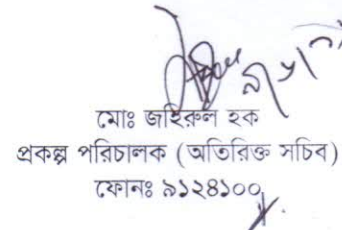 মোঃ জহিরুল হক
প্রকল্প পরিচালক (অতিরিক্ত সচিব)
ফোনঃ ৯১২৪১০০